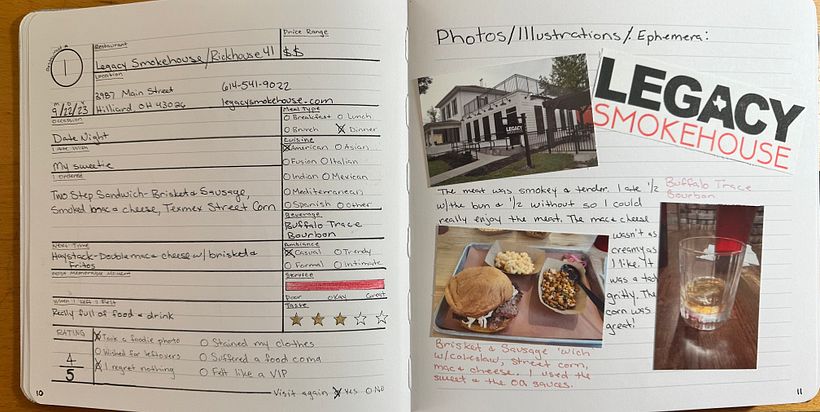 Restaurant
Price Range
1
Legacy Smokehouse/Rickhouse 41
$$
Location
3987 Main Street
614-541-9022
Hilliard OH 43026
legacysmokehouse.com
M D Y
9/22/23
Occasion
Date Night
I Ate With
My sweetie
I Ordered
Two Step Sandwich - Brisket & Sausage,
Smoked mac & cheese, Texmex Street Corn
Next Time
Haystack - Double mac & cheese w/ brisket &
Fritos
Most Memorable Moment
When I Left I Felt
Really full of food & drink
Meal Type
Breakfast Lunch
Brunch X Dinner
Cuisine
X American Asian
Fusion Italian
Indian Mexican
Mediterranean
Spanish Other
Beverage
Buffalo Trace
Bourbon
Ambiance
X Casual Trendy
Formal Intimate
Service
Poor Okay Great
Taste
RATING
4
5
X Took a foodie photo
Stained my clothes
Wished for leftovers
Suffered a food coma
X I regret nothing
Felt like a VIP
Visit again X Yes No
10
Photos/Illustrations/Ephemera:
LEGACY
LEGACY
SMOKEHOUSE
The meat was smokey & tender. I ate 1/2
w/the bun & 1/2 without so I could
really enjoy the meat. The mac & cheese
wasn't as
creamy as
I like. It
was a tad
gritty. The
corn was
great!
Buffalo Trace
Bourbon
Brisket & Sausage 'wich
w/coleslaw, street corn,
mac & cheese. I used the
sweet & the OG sauces.
11